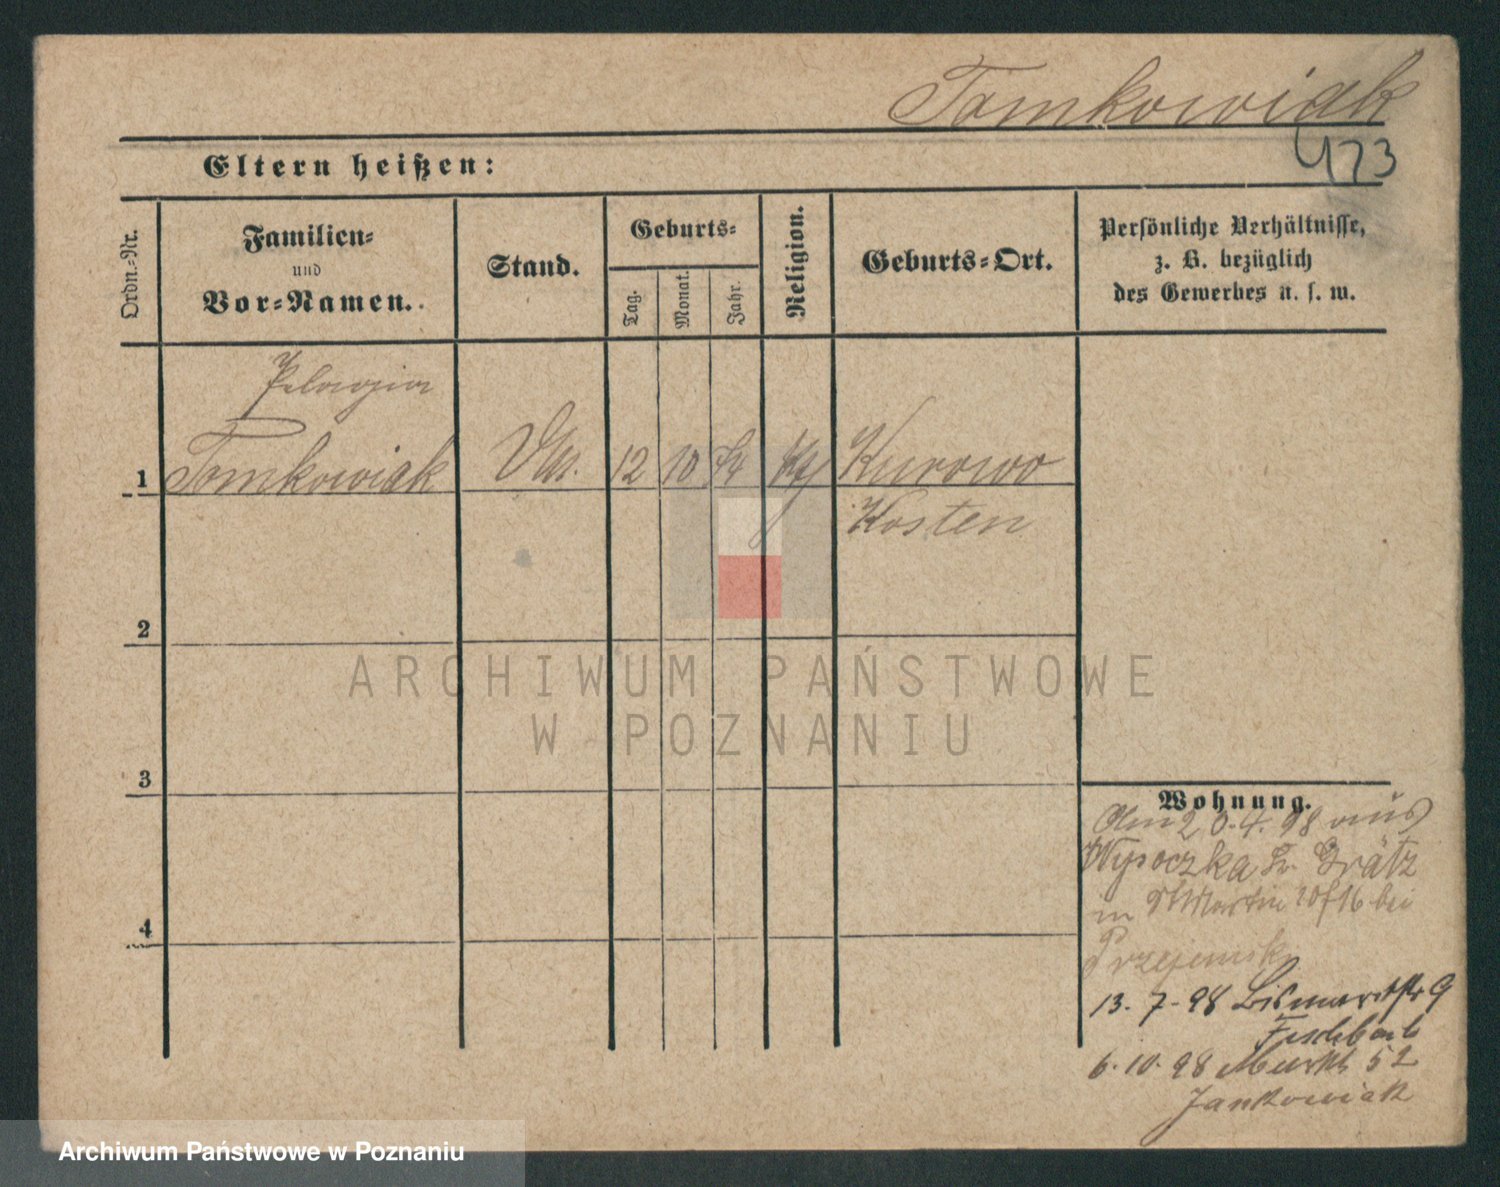 Tomkowiak
473
Eltern heißen:
Ordn.-Nr.
Familien-
und
Vor-Namen.
Stand.
Geburts-
Tag.
Monat.
Jahr.
Religion.
Geburts-Ort.
Persönliche Verhältnisse,
z. B. bezüglich
des Gewerbes u. s. w.
Pelagia
1 Tomkowiak 12 10 kth Kurowo
Kosten
2
3
4
Wohnung.
Am 20.4.98 aus
Wysoczka Kr. Grätz
in St Martin 16 bei
13.7.98 Bismarckstr 9
Fischbach
6.10.98 Markt 52
Jankowiak
ARCHIWUM PAŃSTWOWE
W POZNANIU
Archiwum Państwowe w Poznaniu